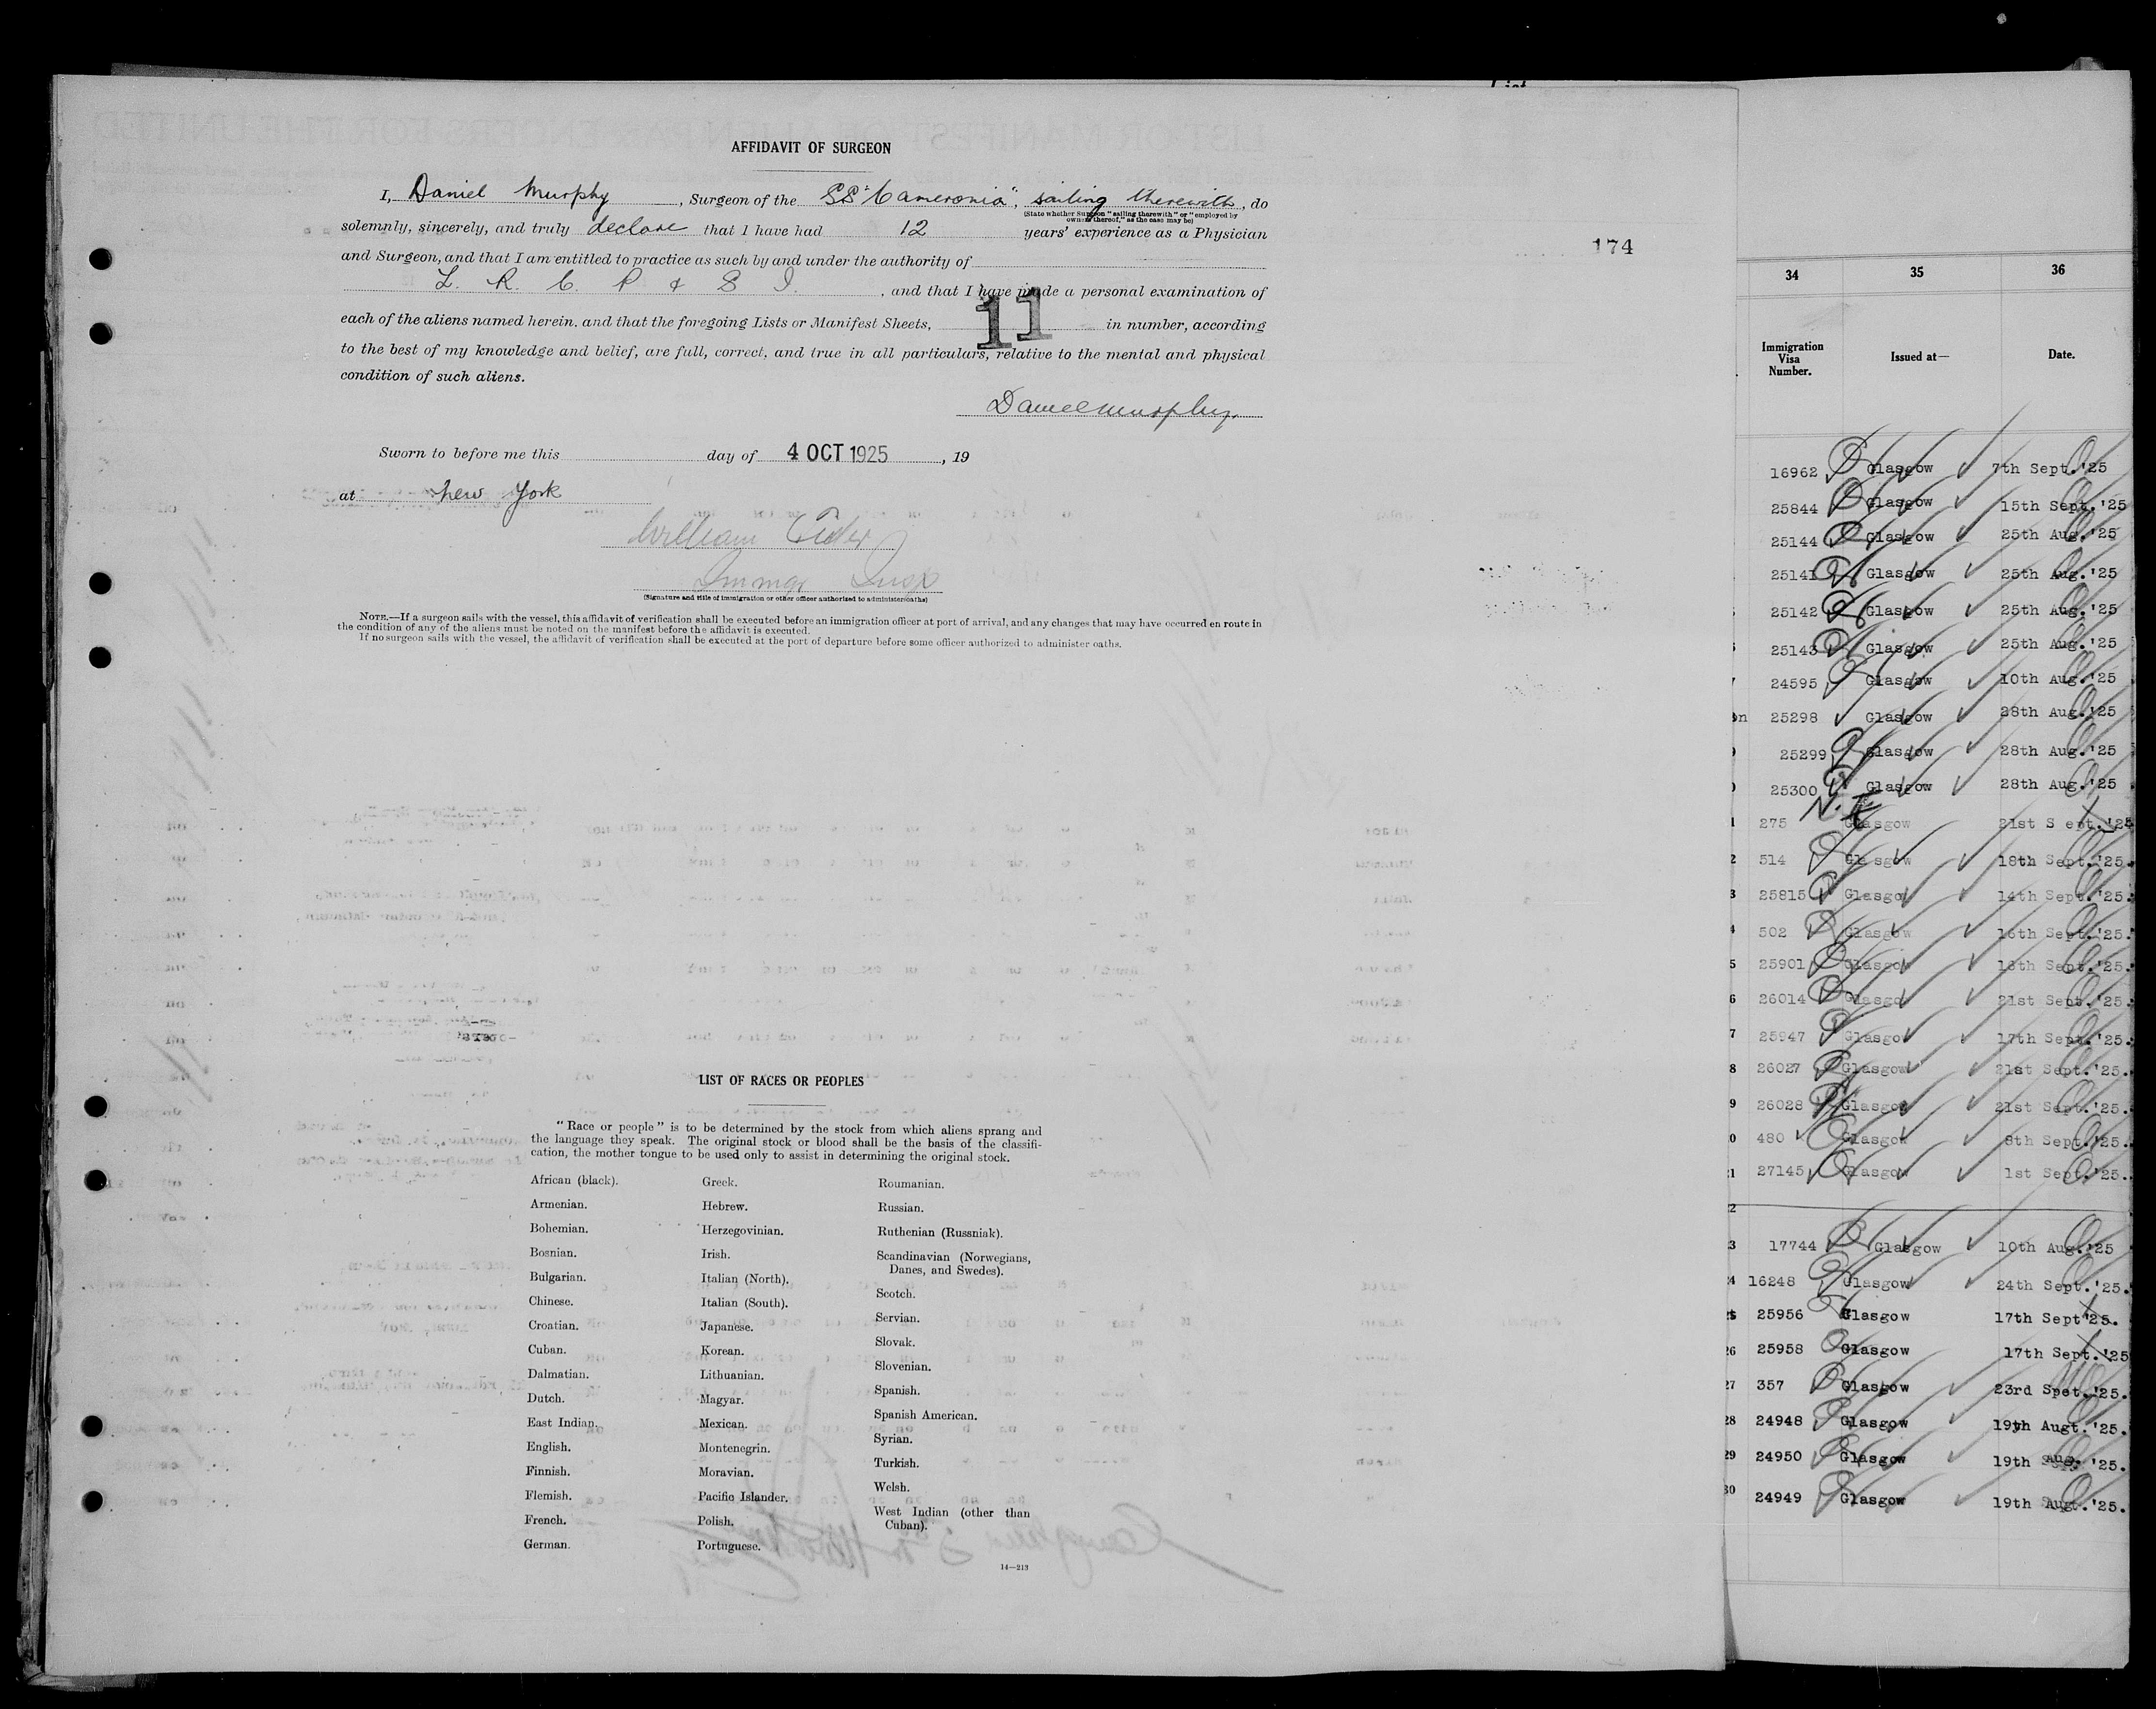 AFFIDAVIT OF SURGEON
I, Daniel Murphy, Surgeon of the SS "Cameronia", sailing therewith, do
(State whether Surgeon "sailing therewith" or "employed by
owners thereof," as the case may be)
solemnly, sincerely, and truly declare that I have had 12 years' experience as a Physician
and Surgeon, and that I am entitled to practice as such by and under the authority of
L. R. C. P & S I., and that I have made a personal examination of
each of the aliens named herein, and that the foregoing Lists or Manifest Sheets, 11 in number, according
to the best of my knowledge and belief, are full, correct, and true in all particulars, relative to the mental and physical
condition of such aliens.
Daniel Murphy.
Sworn to before me this day of 4 OCT 1925, 19
at New York
William
Immgr Insp
(Signature and title of immigration or other officer authorized to administer oaths)
NOTE.—If a surgeon sails with the vessel, this affidavit of verification shall be executed before an immigration officer at port of arrival, and any changes that may have occurred en route in
the condition of any of the aliens must be noted on the manifest before the affidavit is executed.
If no surgeon sails with the vessel, the affidavit of verification shall be executed at the port of departure before some officer authorized to administer oaths.
174
LIST OF RACES OR PEOPLES
"Race or people" is to be determined by the stock from which aliens sprang and
the language they speak. The original stock or blood shall be the basis of the classifi-
cation, the mother tongue to be used only to assist in determining the original stock.
African (black).
Armenian.
Bohemian.
Bosnian.
Bulgarian.
Chinese.
Croatian.
Cuban.
Dalmatian.
Dutch.
East Indian.
English.
Finnish.
Flemish.
French.
German.
Greek.
Hebrew.
Herzegovinian.
Irish.
Italian (North).
Italian (South).
Japanese.
Korean.
Lithuanian.
Magyar.
Mexican.
Montenegrin.
Moravian.
Pacific Islander.
Polish.
Portuguese.
Roumanian.
Russian.
Ruthenian (Russniak).
Scandinavian (Norwegians,
Danes, and Swedes).
Scotch.
Servian.
Slovak.
Slovenian.
Spanish.
Spanish American.
Syrian.
Turkish.
Welsh.
West Indian (other than
Cuban).
14—213
34 35 36
Immigration
Visa
Number.
Issued at—
Date.
16962 Glasgow 7th Sept.'25
25844 Glasgow 15th Sept.'25
25144 Glasgow 25th Aug.'25
25141 Glasgow 25th Aug.'25
25142 Glasgow 25th Aug.'25
25143 Glasgow 25th Aug.'25
24595 Glasgow 10th Aug.'25
25298 Glasgow 28th Aug.'25
25299 Glasgow 28th Aug.'25
25300 Glasgow 28th Aug.'25
275 Glasgow 21st S ept.'25
2 514 Glasgow 18th Sept.'25.
3 25815 Glasgow 14th Sept.'25.
4 502 Glasgow 16th Sept.'25.
5 25901 Glasgow 18th Sept.'25.
6 26014 Glasgow 21st Sept.'25.
7 25947 Glasgow 17th Sept.'25.
8 26027 Glasgow 21st Sept.'25.
9 26028 Glasgow 21st Sept.'25.
0 480 Glasgow 8th Sept.'25.
21 27145 Glasgow 1st Sept.'25.
22
3 17744 Glasgow 10th Aug.'25
24 16248 Glasgow 24th Sept.'25.
25 25956 Glasgow 17th Sept'25.
26 25958 Glasgow 17th Sept.'25
27 357 Glasgow 23rd Spet.'25.
28 24948 Glasgow 19th Augt.'25.
29 24950 Glasgow 19th Aug. '25.
30 24949 Glasgow 19th Augt.'25.